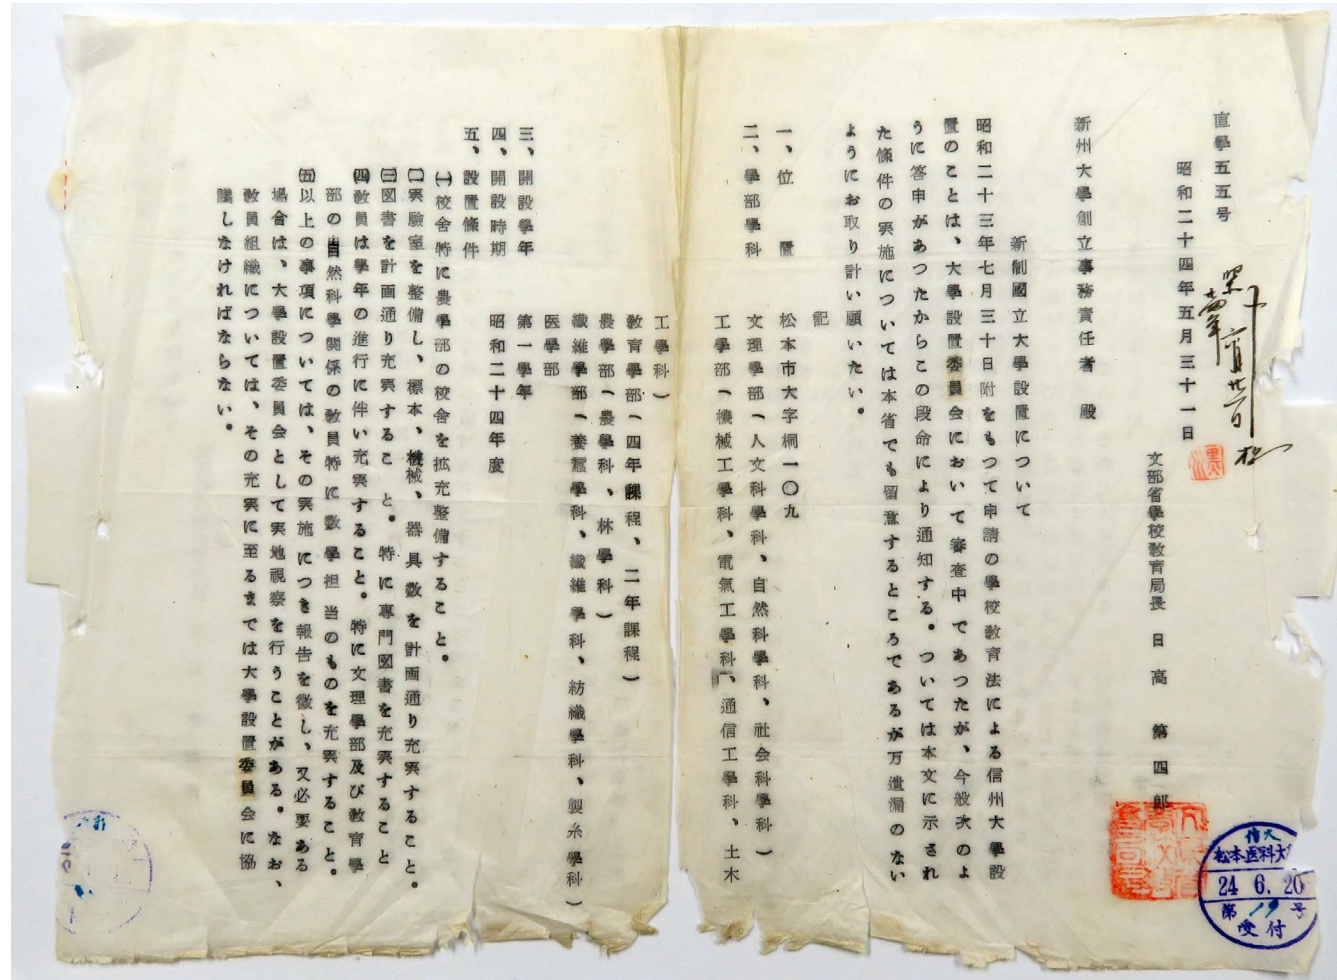 直學五五号
昭和二十四年五月三十一日
文部省學校敎育局長　日高　第四郎
新州大學創立事務責任者　殿
新制國立大學設置について
昭和二十三年七月三十日附をもつて申請の學校敎育法による信州大學設
置のことは、大學設置委員会において審査中であつたが、今般次のよ
うに答申があつたからこの段命により通知する。ついては本文に示され
た條件の実施については本省でも留意するところであるが万遺漏のない
ようにお取り計い願いたい。
記
一、位　置　松本市大字桐一〇九
二、學部學科　文理學部（人文科學科、自然科學科、社会科學科）
工學部（機械工學科、電氣工學科、通信工學科、土木
工學科）
敎育學部（四年課程、二年課程）
農學部（農學科、林學科）
纖維學部（養蠶學科、纖維學科、紡織學科、製糸學科）
医學部
三、開設學年　第一學年
四、開設時期　昭和二十四年度
五、設置條件
㈠校舎特に農學部の校舎を拡充整備すること。
㈡実驗室を整備し、標本、機械、器具数を計画通り充実すること。
㈢図書を計画通り充実すること。特に専門図書を充実すること
㈣敎員は學年の進行に伴い充実すること。特に文理學部及び敎育學
部の自然科學関係の敎員特に数學担当のものを充実すること。
㈤以上の事項については、その実施につき報告を徴し、又必要ある
場合は、大學設置委員会として実地視察を行うことがある。なお、
敎員組織については、その充実に至るまでは大學設置委員会に協
議しなければならない。
信大
松本医科大
24 6. 20
第 19 号
受付